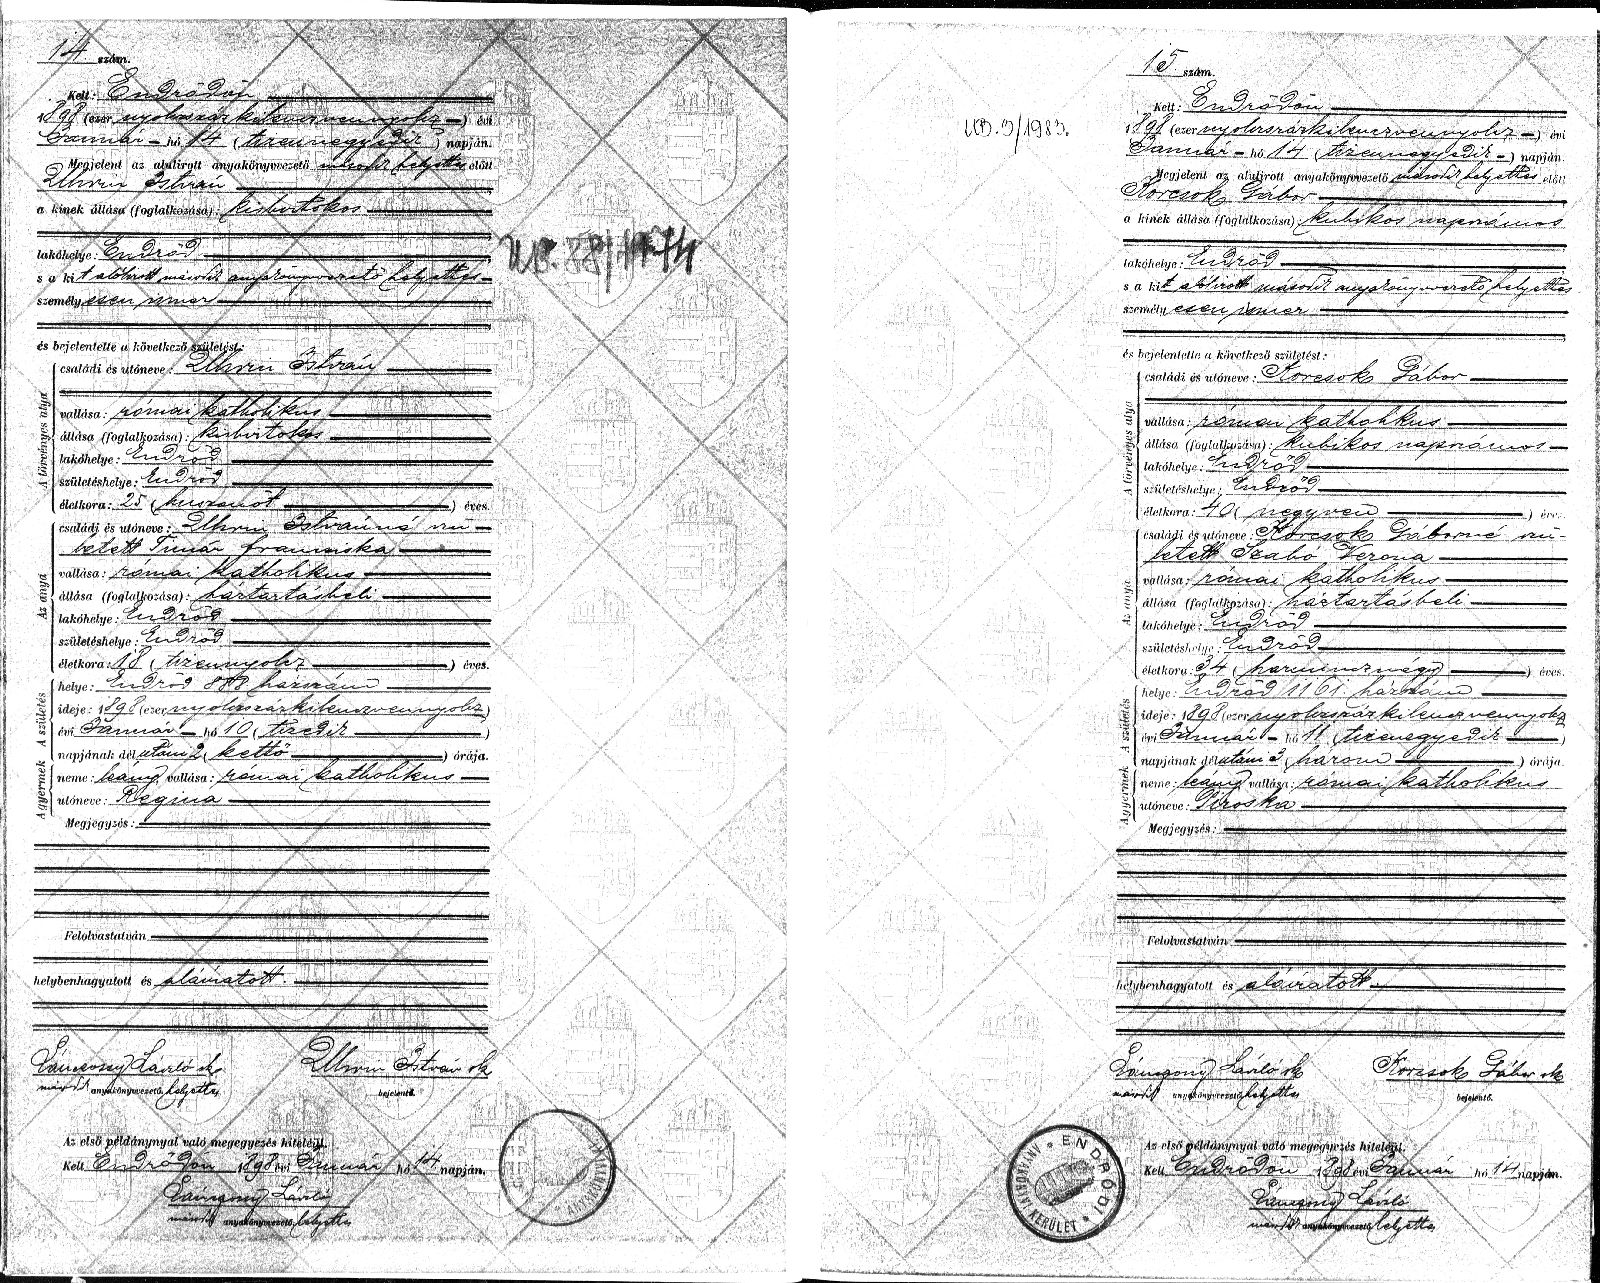 14 szám.
Kelt: Endrődön
1898 (ezer nyolcszázkilenczvennyolcz) évi
Január hó 14 (tizennegyedik) napján.
Megjelent az alulirott anyakönyvezető második helyettes előtt
Uhrin István
a kinek állása (foglalkozása): kisbirtokos
lakóhelye: Endrőd
s a kit alólirott második anyakönyvvezető helyettes
személyesen ismer
és bejelentette a következő születést:
A törvényes atya
családi és utóneve: Uhrin István
vallása: római katholikus
állása (foglalkozása): kisbirtokos
lakóhelye: Endrőd
születéshelye: Endrőd
életkora: 25 (huszonöt) éves.
Az anya
családi és utóneve: Uhrin Istvánné szü-
letett Timár Franciska
vallása: római katholikus
állása (foglalkozása): háztartásbeli
lakóhelye: Endrőd
születéshelye: Endrőd
életkora: 18 (tizennyolcz) éves.
A születés
helye: Endrőd 888 házszám
ideje: 1898 (ezer nyolcszázkilenczvennyolcz)
évi Január hó 10 (tizedik)
napjának délután 2 (kettő) órája.
A gyermek
neme: leány vallása: római katholikus
utóneve: Regina
Megjegyzés:
Felolvastatván
helybenhagyatott és aláiratott.
László sk Uhrin István sk
második anyakönyvvezető helyettes bejelentő.
Az első példánynyal való megegyezés hiteléül.
Kelt Endrődön 1898 évi Január hó 14 napján.
László
második anyakönyvvezető helyettes
15 szám.
UB. 3/1983.
Kelt: Endrődön
1898 (ezer nyolcszázkilenczvennyolcz) évi
Január hó 14 (tizennegyedik) napján.
Megjelent az alulirott anyakönyvvezető második helyettes előtt
Korcsok Gábor
a kinek állása (foglalkozása): kubikos napszámos
lakóhelye: Endrőd
s a kit alólirott második anyakönyvvezető helyettes
személyesen ismer
és bejelentette a következő születést:
A törvényes atya
családi és utóneve: Korcsok Gábor
vallása: római katholikus
állása (foglalkozása): kubikos napszámos
lakóhelye: Endrőd
születéshelye: Endrőd
életkora: 40 (negyven) éves.
Az anya
családi és utóneve: Korcsok Gáborné szü-
letett Szabó Verona
vallása: római katholikus
állása (foglalkozása): háztartásbeli
lakóhelye: Endrőd
születéshelye: Endrőd
életkora: 34 (harmincznégy) éves.
A születés
helye: Endrőd 1161. házszám
ideje: 1898 (ezer nyolcszázkilenczvennyolcz)
évi Január hó 11 (tizenegyedik)
napjának délután 3 (három) órája.
A gyermek
neme: leány vallása: római katholikus
utóneve: Piroska
Megjegyzés:
Felolvastatván
helybenhagyatott és aláiratott.
László sk Korcsok Gábor sk
második anyakönyvvezető helyettes bejelentő.
ENDRŐDI KERÜLET
Az első példánynyal való megegyezés hiteléül.
Kelt Endrődön 1898 évi Január hó 14 napján.
László
második anyakönyvvezető helyettes